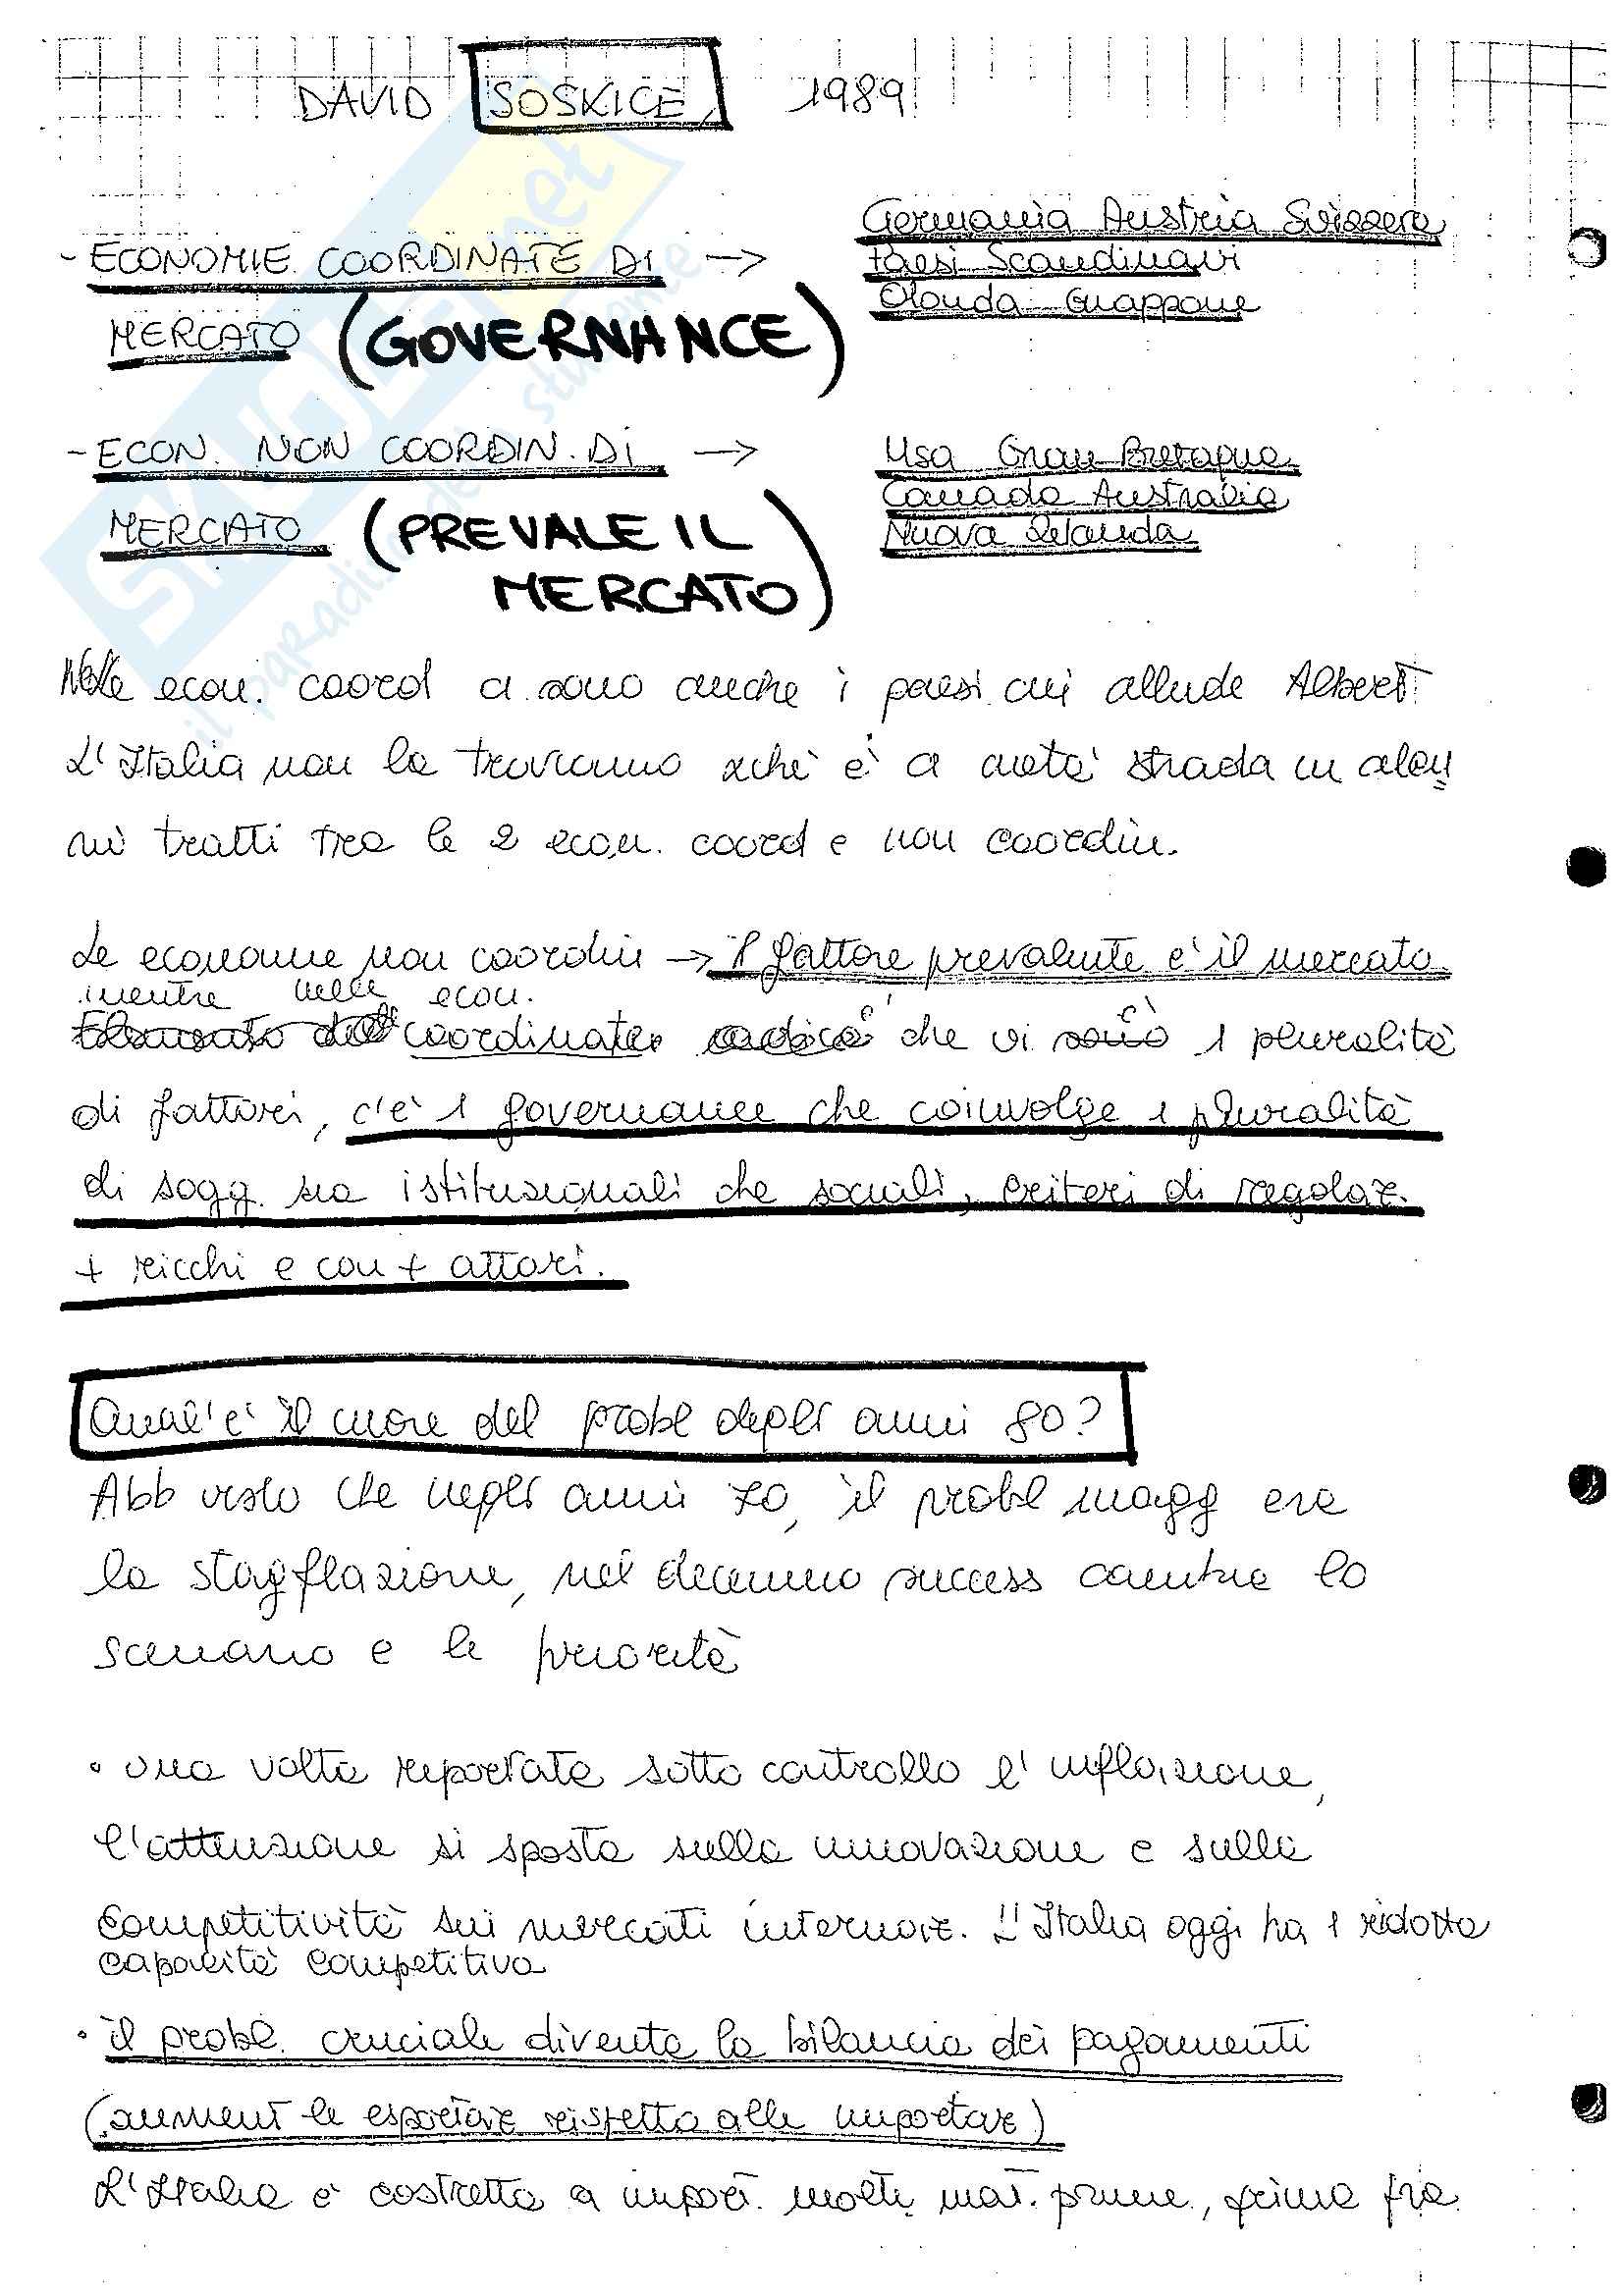 DAVID SOSKICE, 1989
- ECONOMIE COORDINATE DI → Germania Austria Svizzera
Paesi Scandinavi
Olanda Giappone
MERCATO (GOVERNANCE)
- ECON. NON COORDIN. DI → Usa Gran Bretagna
Canada Australia
Nuova Zelanda
MERCATO (PREVALE IL
MERCATO)
Nelle econ. coord ci sono anche i paesi cui allude Albert
L'Italia non la troviamo xchè è a metà strada in alcu
ni tratti tra le 2 econ. coord e non coordin.
Le economie non coordin → il fattore prevalente è il mercato
mentre nelle econ.
coordinate è che vi c'è 1 pluralità
di fattori, c'è 1 governance che coinvolge 1 pluralità
di sogg. sia istituzionali che sociali, criteri di regolaz.
+ ricchi e con + attori.
Qual'è il cuore del probl degli anni 80?
Abb visto che negli anni 70, il probl magg era
la stagflazione, nel decennio success cambia lo
scenario e le priorità
• una volta riportata sotto controllo l'inflazione,
l'attenzione si sposta sulla innovazione e sulla
competitività sui mercati internaz. L'Italia oggi ha 1 ridotta
capacità competitiva
• il probl. cruciale diventa la bilancia dei pagamenti
(aument le esportaz rispetto alle importaz)
L'Italia è costretta a import. molte mat. prime, prima fra
SKUOLA.net
il paradiso dello studente